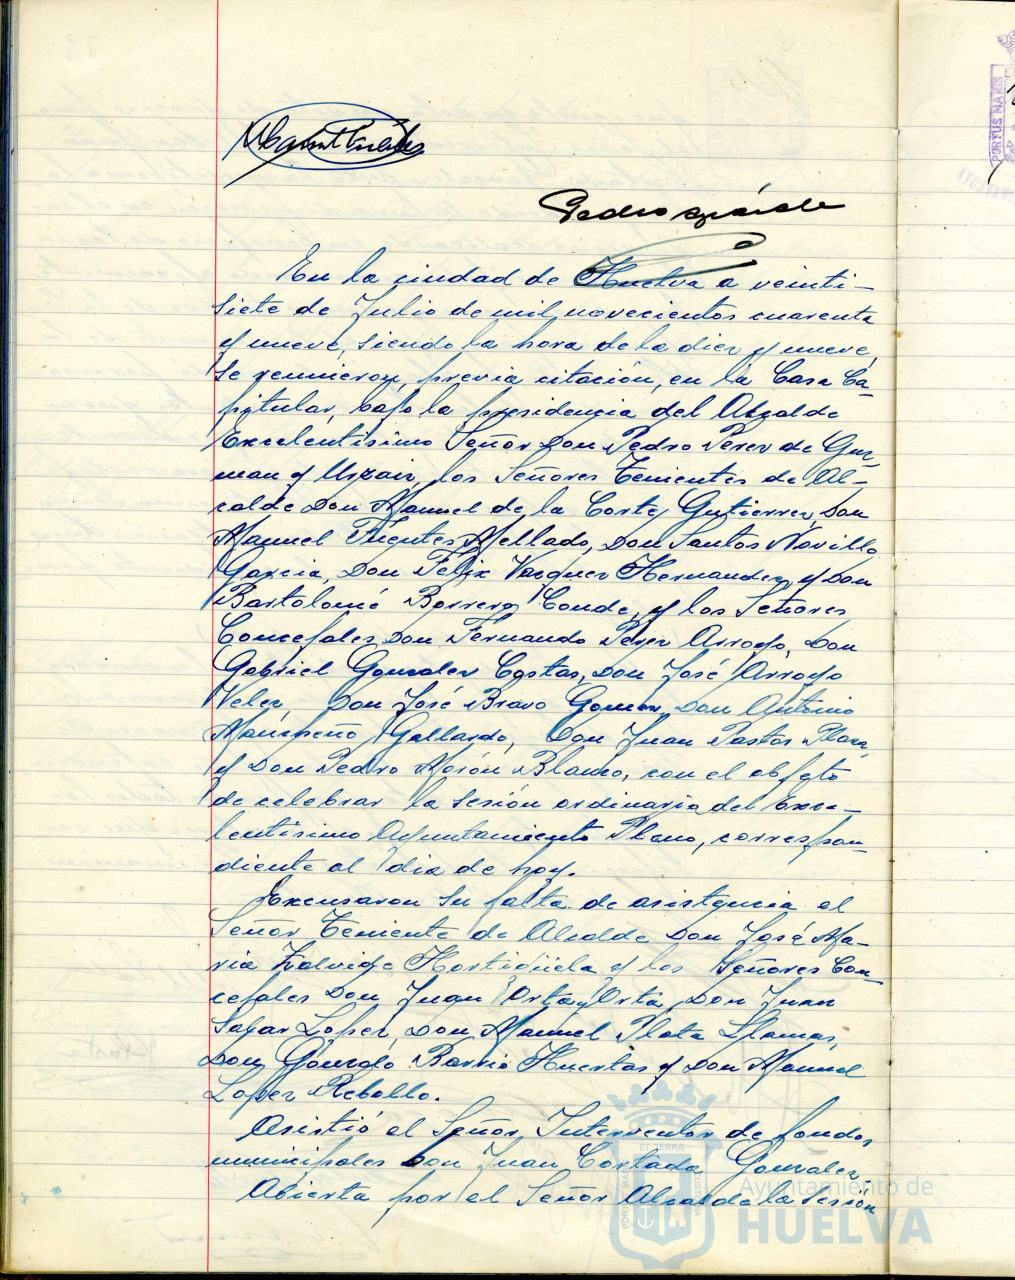 En la ciudad de Huelva a veinti-
siete de Julio de mil novecientos cuarenta
y nueve, siendo la hora de la diez y nueve,
se reunieron, previa citación, en la Casa Ca-
pitular, bajo la presidencia del Alcalde
Excelentísimo Señor Don Pedro Perez de Guz-
man y Urzaiz, los Señores Tenientes de Al-
calde Don Manuel de la Corte y Gutierrez, Don
Manuel Fuentes Mellado, Don Santos Novillo
Garcia, Don Felix Vazquez Hernandez, y Don
Bartolomé Borrero Conde, y los Señores
Concejales Don Fernando Perez Arroyo, Don
Gabriel Gonzalez Costas, Don José Arroyo
Velez Don José Bravo Gomez, Don Antonio
Gallardo, Don Juan Pastor Plaza,
y Don Pedro Morón Blanco, con el objeto
de celebrar la sesión ordinaria del Exce-
lentísimo Ayuntamiento Pleno, correspon-
diente al día de hoy.
Excusaron su falta de asistencia el
Señor Teniente de Alcalde Don José Ma-
ria Zalvide Hortigüela y los Señores Con-
cejales Don Juan Orta y Orta, Don Juan
Lopez, Don Manuel Plata Llamas,
Don Gonzalo Barrio Huertas y Don Manuel
Lopez Rebollo.
Asistió el Señor Interventor de fondos
municipales Don Juan Cortada Gonzalez.
Abierta por el Señor Alcalde la sesión
PORTUS MARIS
ET TERRÆ
Ayuntamiento de
HUELVA